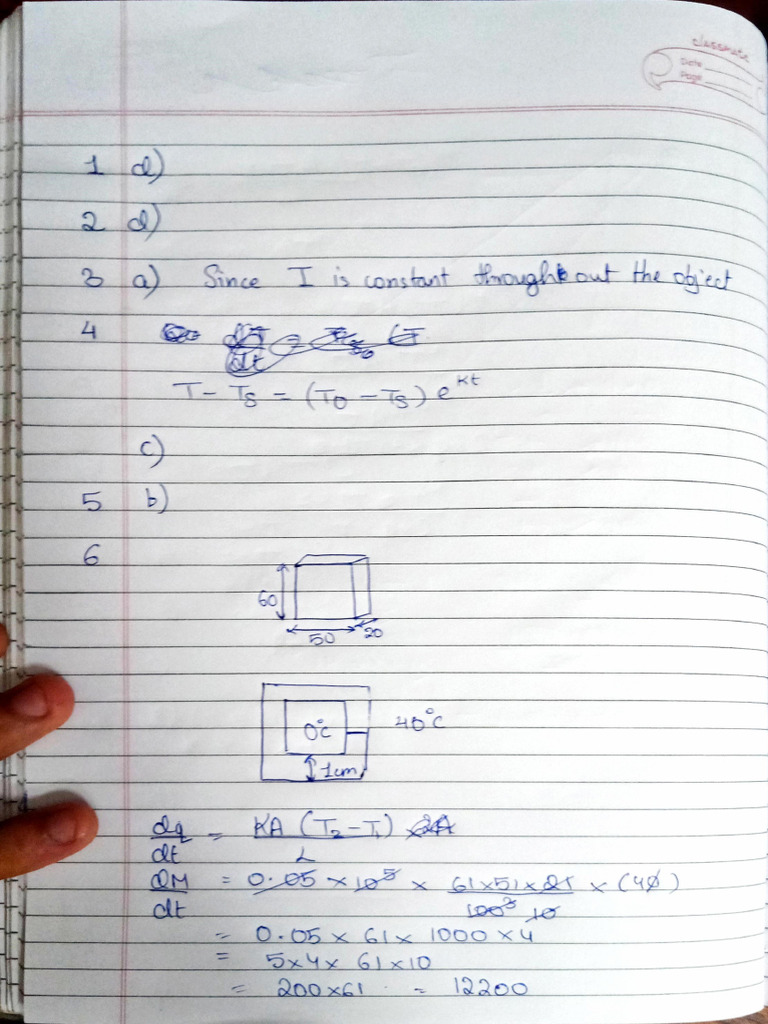 classmate
Date
Page
1 d)
2 d)
3 a) Since I is constant throughout the object
4
T - Ts = (To - Ts) e^kt
c)
5 b)
6
60
50
20
0°C
40°C
1cm
dq/dt = KA (T2 - T1) / L
dM/dt = 0.05 × 10^5 × 61×51×21 / 100^3 10 × (40)
= 0.05 × 61 × 1000 × 4
= 5×4× 61×10
= 200×61 = 12200